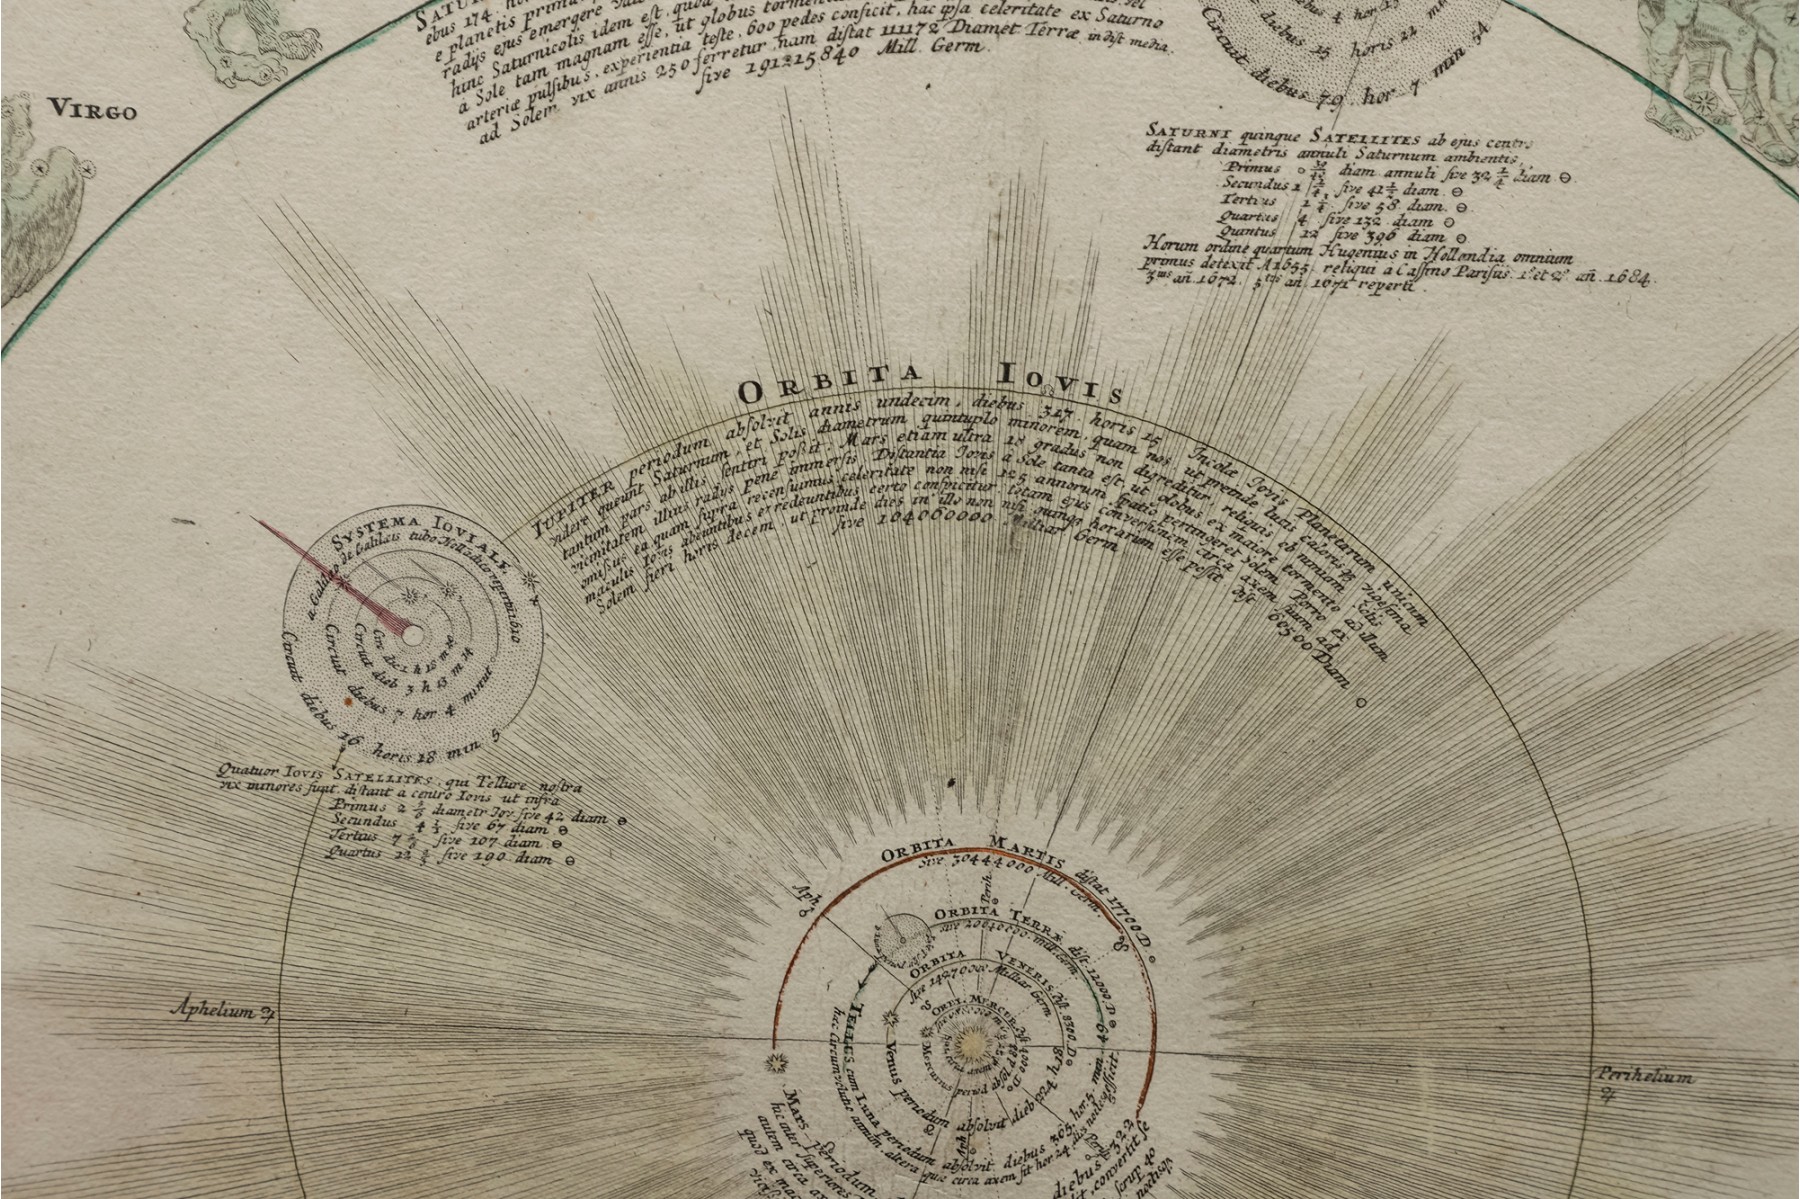 SATU
ebus 174. ho
e planetis prima
radijs ejus emergere
hinc Saturnicolis idem est, quod
à Sole tam magnam esse, ut globus tormen
arteriæ pulsibus, experientia teste, 600 pedes conficit, hac ipsa celeritate ex Saturno
ad Solem vix annis 250 ferretur, nam distat 111172 Diamet Terræ in dist media.
sive 191215840 Mill. Germ.
VIRGO
diebus 4 hor
diebus 15 horis 22 m
Circuit diebus 79 hor 7 min 54
SATURNI quinque SATELLITES ab ejus centro
distant diametris annuli Saturnum ambientis,
Primus diam annuli sive 32 1/4 diam ⊖.
Secundus 1 1/4 sive 41 1/2 diam. ⊖
Tertius 1 3/4 sive 58 diam. ⊖
Quartus 4 sive 132 diam ⊖
Quantus 12 sive 396 diam ⊖
Horum ordine quartum Hugenius in Hollandia omnium
primus detexit A 1655 reliqui a Cassino Parisiis 1 et 2 añ. 1684.
3 añ. 1672. 5 añ 1671 reperti.
ORBITA IOVIS
IUPITER periodum absolvit annis undecim, diebus 317 horis 15 Incolæ Iovis Planetarum unicum
videre queunt Saturnum, et Solis diametrum quintuplo minorem, quam nos ut proinde lucis caloris
tantum pars ab illis sentiri possit. Mars etiam ultra 18 gradus non digreditur reliquis ob nimiam Solis
vicinitatem illius radijs pene immersis Distantia Iovis à Sole tanta est, ut globus ex maiore tormento ad illum
omissus ea quam supra recensuimus celeritate non nisi 125 annorum spatio pertingeret Solem. Porro ex
maculis Iovis abeuntibus et redeuntibus certo conspicitur totam ejus conversionem circa axem suum ad
Solem fieri horis decem, ut proinde dies in illo non nisi quinque horarum esse possit dist 60500 Diam
sive 104060000 Milliar Germ
SYSTEMA IOVIALE,
a Galilæo de Galileis tubo repertum 1610
Circ die 1 h 18 m
Circuit dieb 3 h 13 m 14
Circuit diebus 7 hor 4 minut
Circuit diebus 16 horis 18 min 5
Quatuor IOVIS SATELLITES, qui Tellure nostra
vix minores sunt, distant a centro Iovis ut infra
Primus 2 diametr Iov sive 42 diam ⊖
Secundus 4 sive 67 diam ⊖
Tertius 7 sive 107 diam ⊖
Quartus 12 sive 190 diam ⊖
Aphelium ♃
Perihelium
♃
ORBITA MARTIS distat 17700 D
sive 30444000 Mill. Germ
Aph.
♂
Perih.
ORBITA TERRÆ dist. 12000 D ⊖
ORBITA VENERIS dist. 8300 D
sive 14270000 Milliar Germ
ORB. MERCUR.
Mercurius period absol
Venus periodum absolvit dieb 224 h
TELLUS cum Luna periodum absolvit diebus 365 hor. 5. min 49
hac circumvolutio annum, altera quæ circa axem fit hor 24
Aph
Perih
MARS periodum
hic inter superiores
autem circa ax
quod ex ma
diebus 322
convertit se
scrup 40